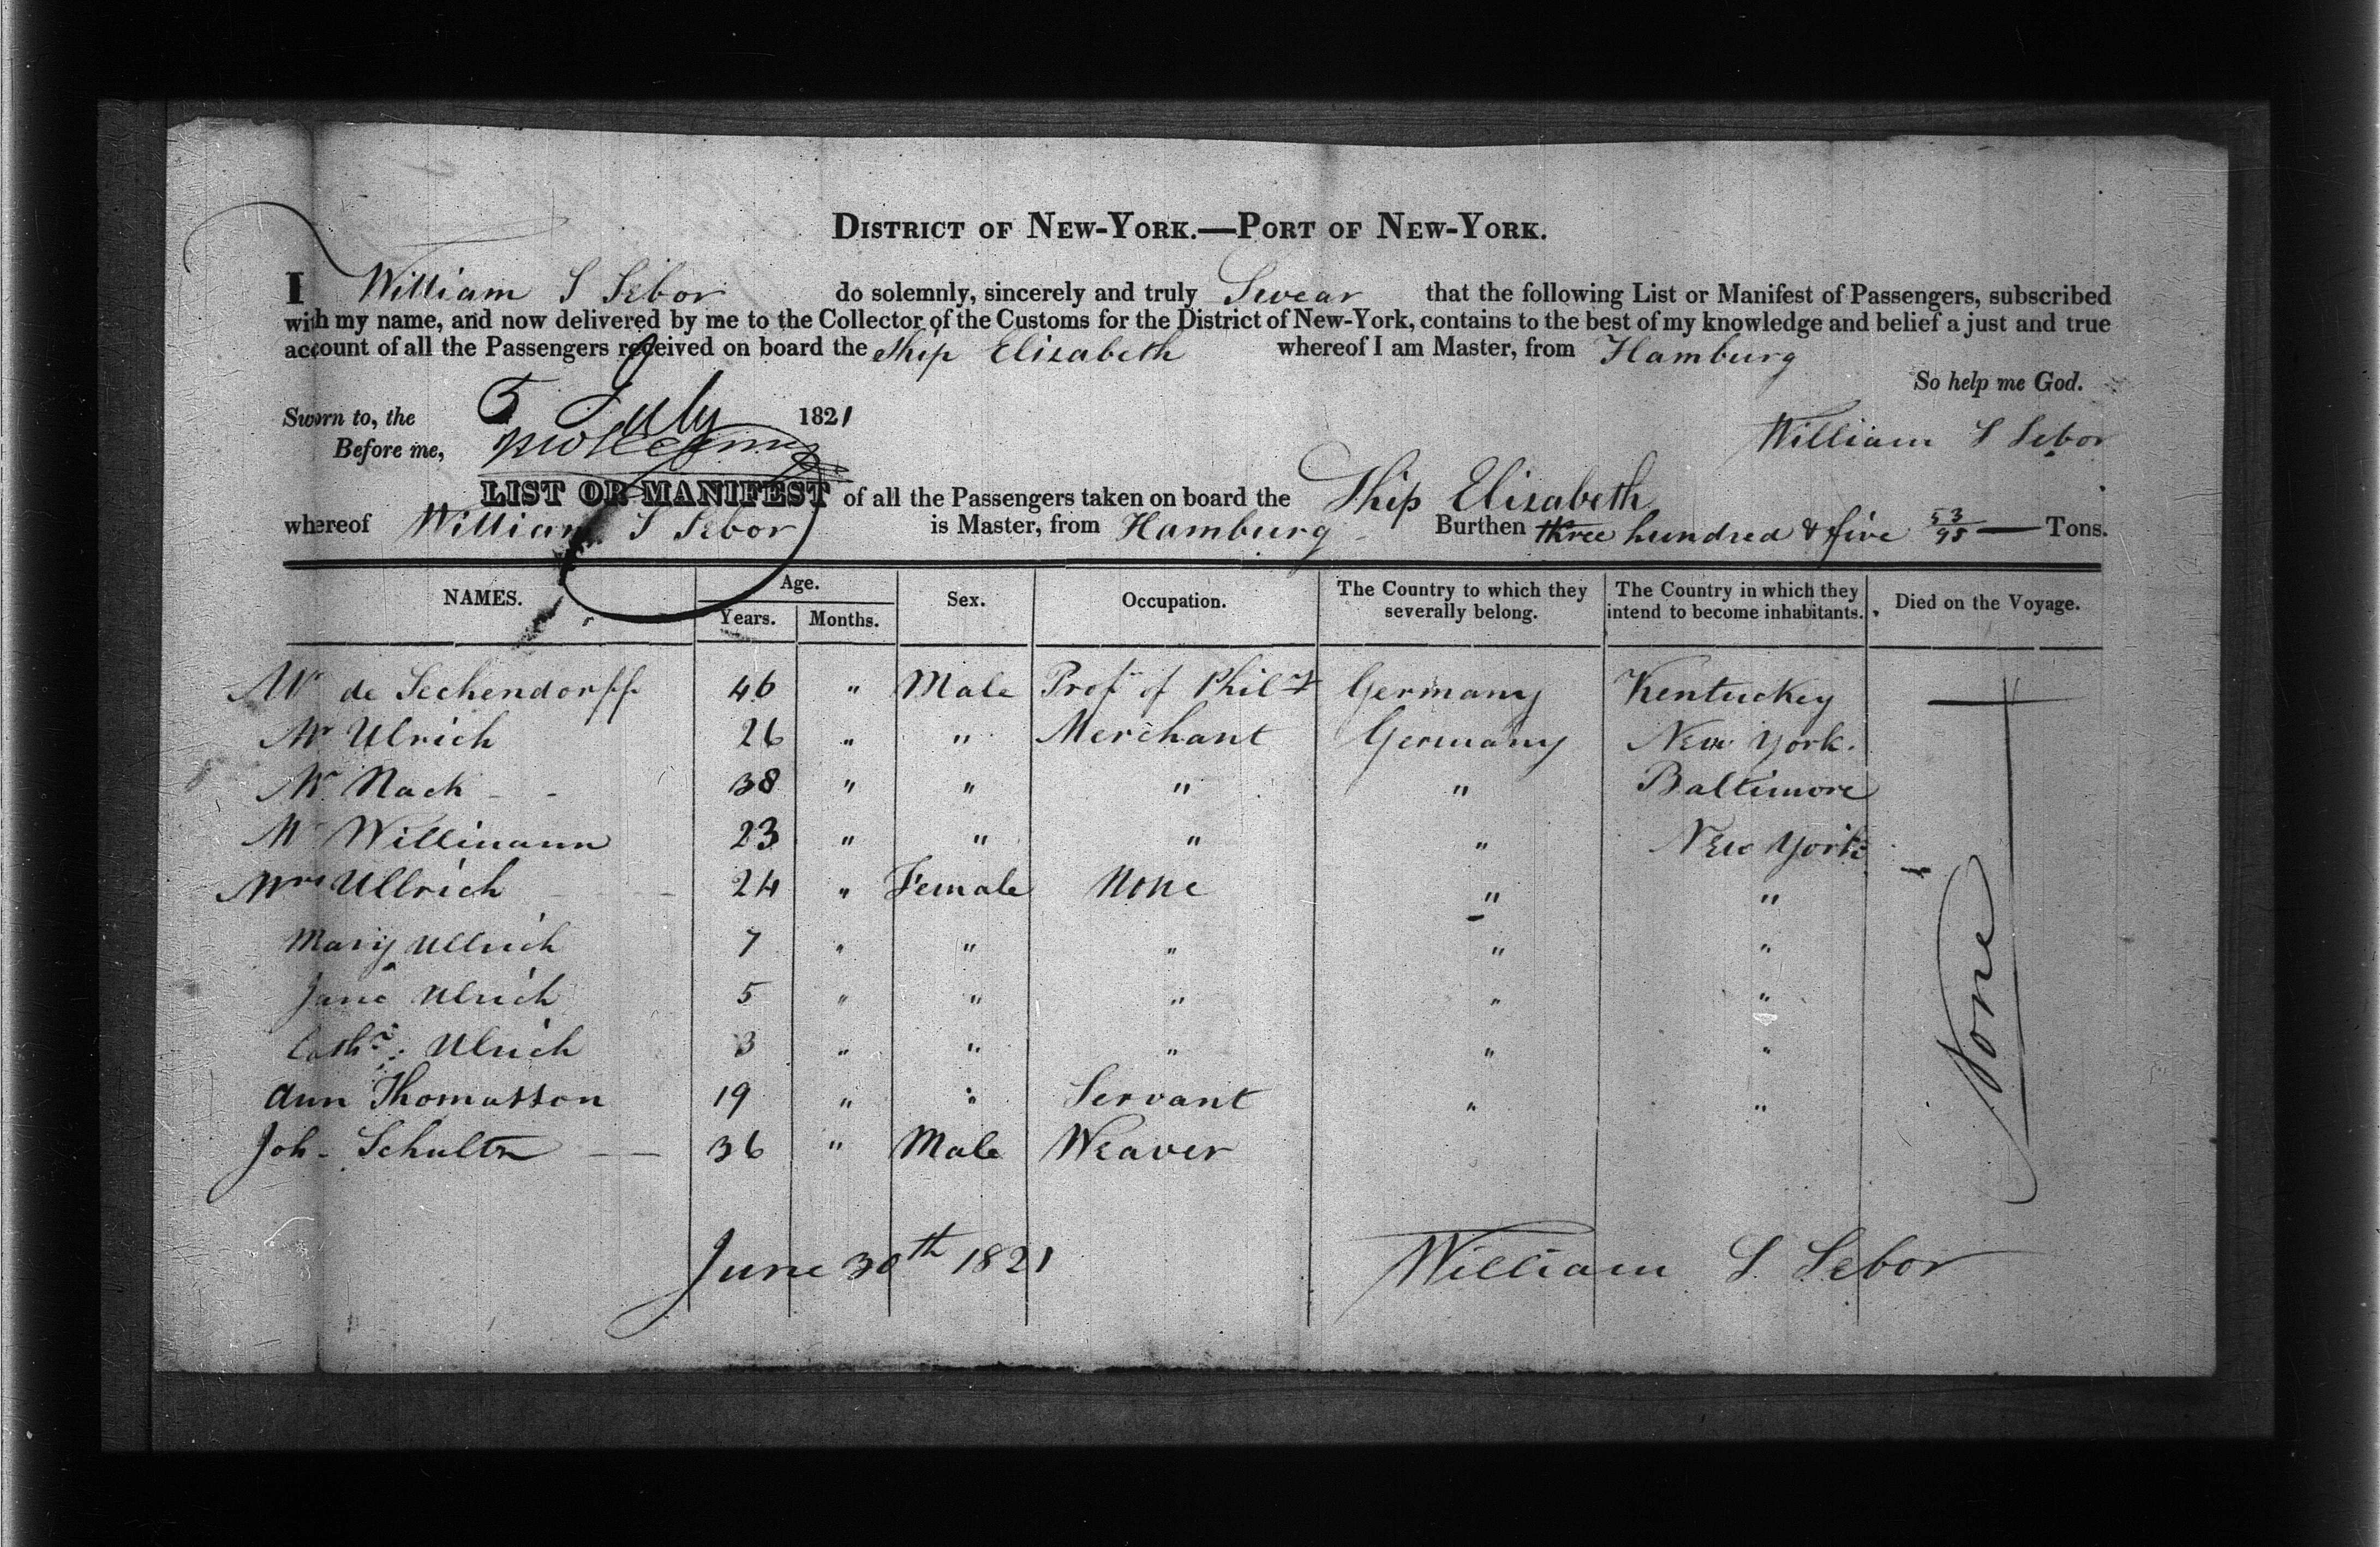 DISTRICT OF NEW-YORK.—PORT OF NEW-YORK.
I William S Sebor do solemnly, sincerely and truly Swear that the following List or Manifest of Passengers, subscribed
with my name, and now delivered by me to the Collector of the Customs for the District of New-York, contains to the best of my knowledge and belief a just and true
account of all the Passengers received on board the Ship Elizabeth whereof I am Master, from Hamburg
So help me God.
Sworn to, the 5 July 1821
William S Sebor
Before me,
LIST OR MANIFEST of all the Passengers taken on board the Ship Elizabeth
whereof William S Sebor is Master, from Hamburg Burthen three hundred & five 53/95 — Tons.
NAMES. Age. Years. Months. Sex. Occupation. The Country to which they severally belong. The Country in which they intend to become inhabitants. Died on the Voyage.
Mr de Seckendorff 46 " Male Profr of Phily Germany Kentuckey
Mr Ulrich 26 " " Merchant Germany New York.
Mr Nack - - 38 " " " " Baltimore
Mr Willimann 23 " " " " New York
Mrs Ullrich 24 " Female None " "
Mary Ullrich 7 " " " " "
Jane Ulrich 5 " " " " "
Cathe: Ulrich 3 " " " " "
Ann Thomasson 19 " " Servant " "
Joh- Schultz — — 36 " Male Weaver
None
June 30th 1821 William S Sebor